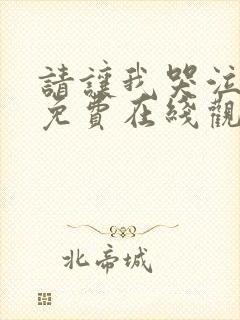 請讓我哭泣
免費在綫觀
北帝城